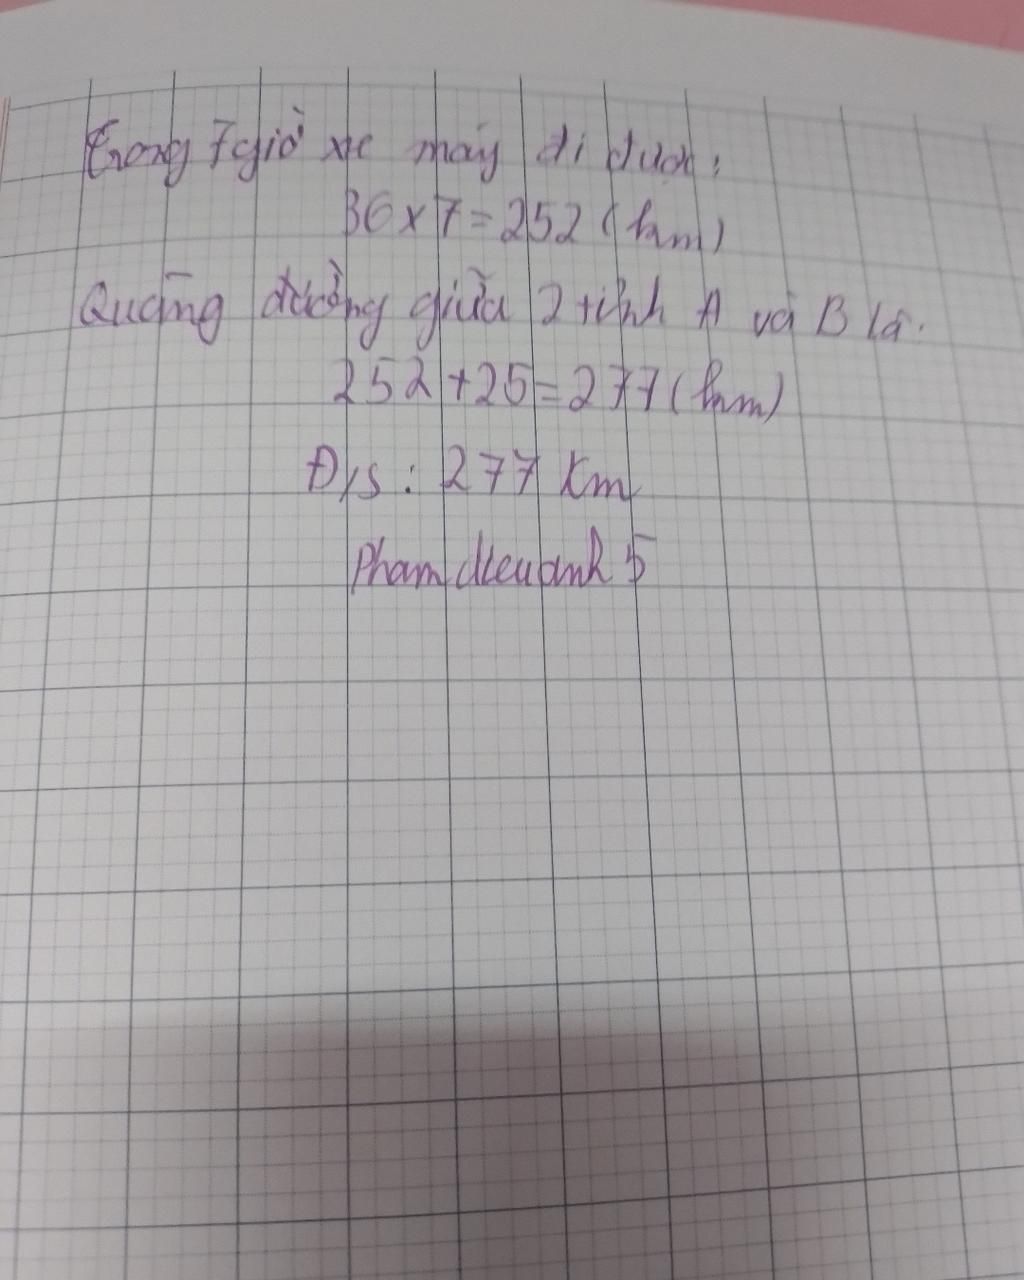 Trong 7 giờ xe máy đi được:
36 x 7 = 252 (km)
Quãng đường giữa 2 tỉnh A và B là.
252 + 25 = 277 (km)
Đ/s : 277 km
Pham dieu anh 5